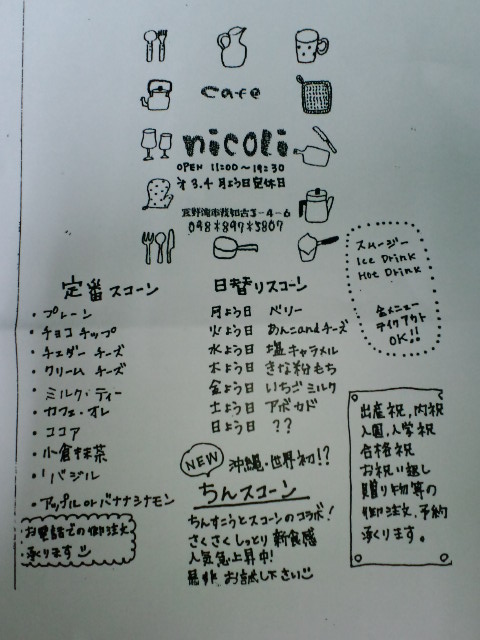 Cafe
nicoli
OPEN 11:00〜19:30
オ3.4 月よう日定休日
宜野湾市我如古3-4-6
098*897*5807
スムージー
Ice Drink
Hot Drink
全メニュー
テイクアウト
OK!!
定番スコーン
・プレーン
・チョコチップ
・チェダーチーズ
・クリームチーズ
・ミルク・ティー
・カフェ・オレ
・ココア
・小倉抹茶
・バジル
・アップルorバナナシナモン
お電話での御注文
承ります
日替りスコーン
月よう日 ベリー
火よう日 あんこandチーズ
水よう日 塩キャラメル
木よう日 きな粉もち
金よう日 いちごミルク
土よう日 アボカド
日よう日 ??
NEW 沖縄・世界初!?
ちんスコーン
ちんすこうとスコーンのコラボ!
さくさくしっとり新食感
人気急上昇中!
是非お試し下さい
出産祝,内祝
入園,入学祝
合格祝
お祝い返し
贈り物等の
御注文,予約
承ります。